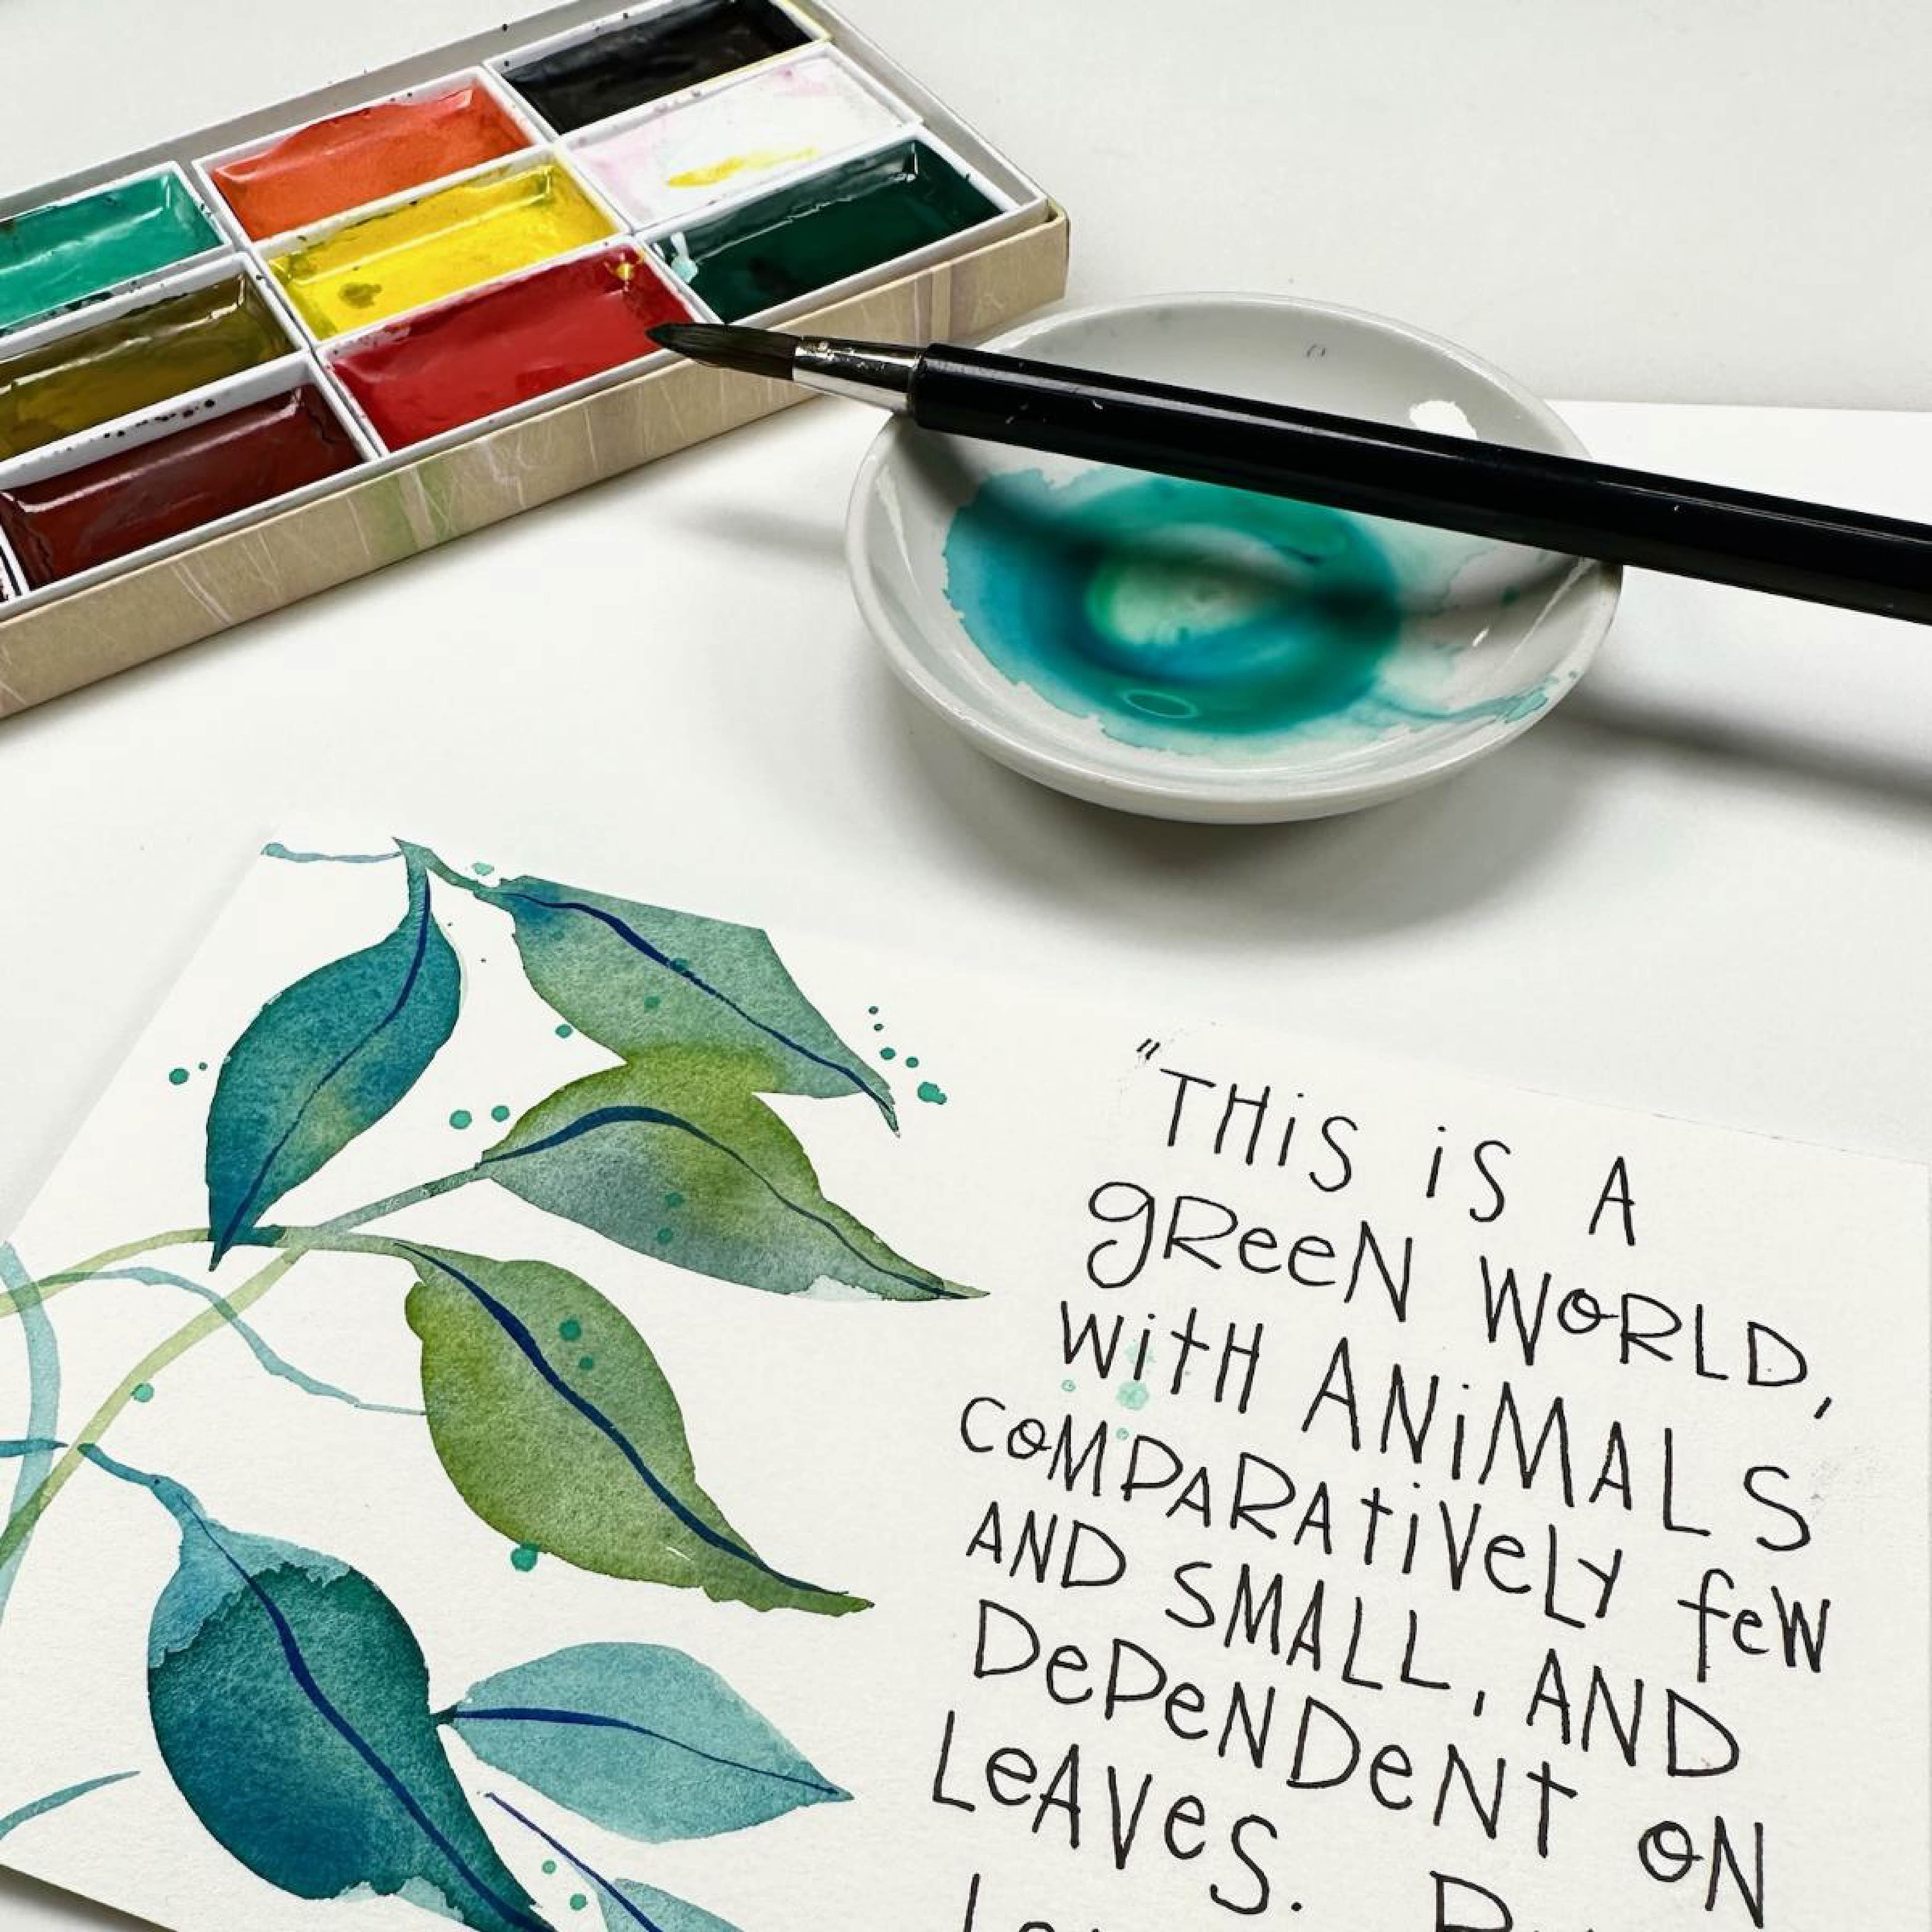 "THiS iS A
gReeN WORLD,
WitH ANiMALS
COMPARAtiVeLy feW
AND SMALL, AND
DePeNDeNt ON
LeAVeS.